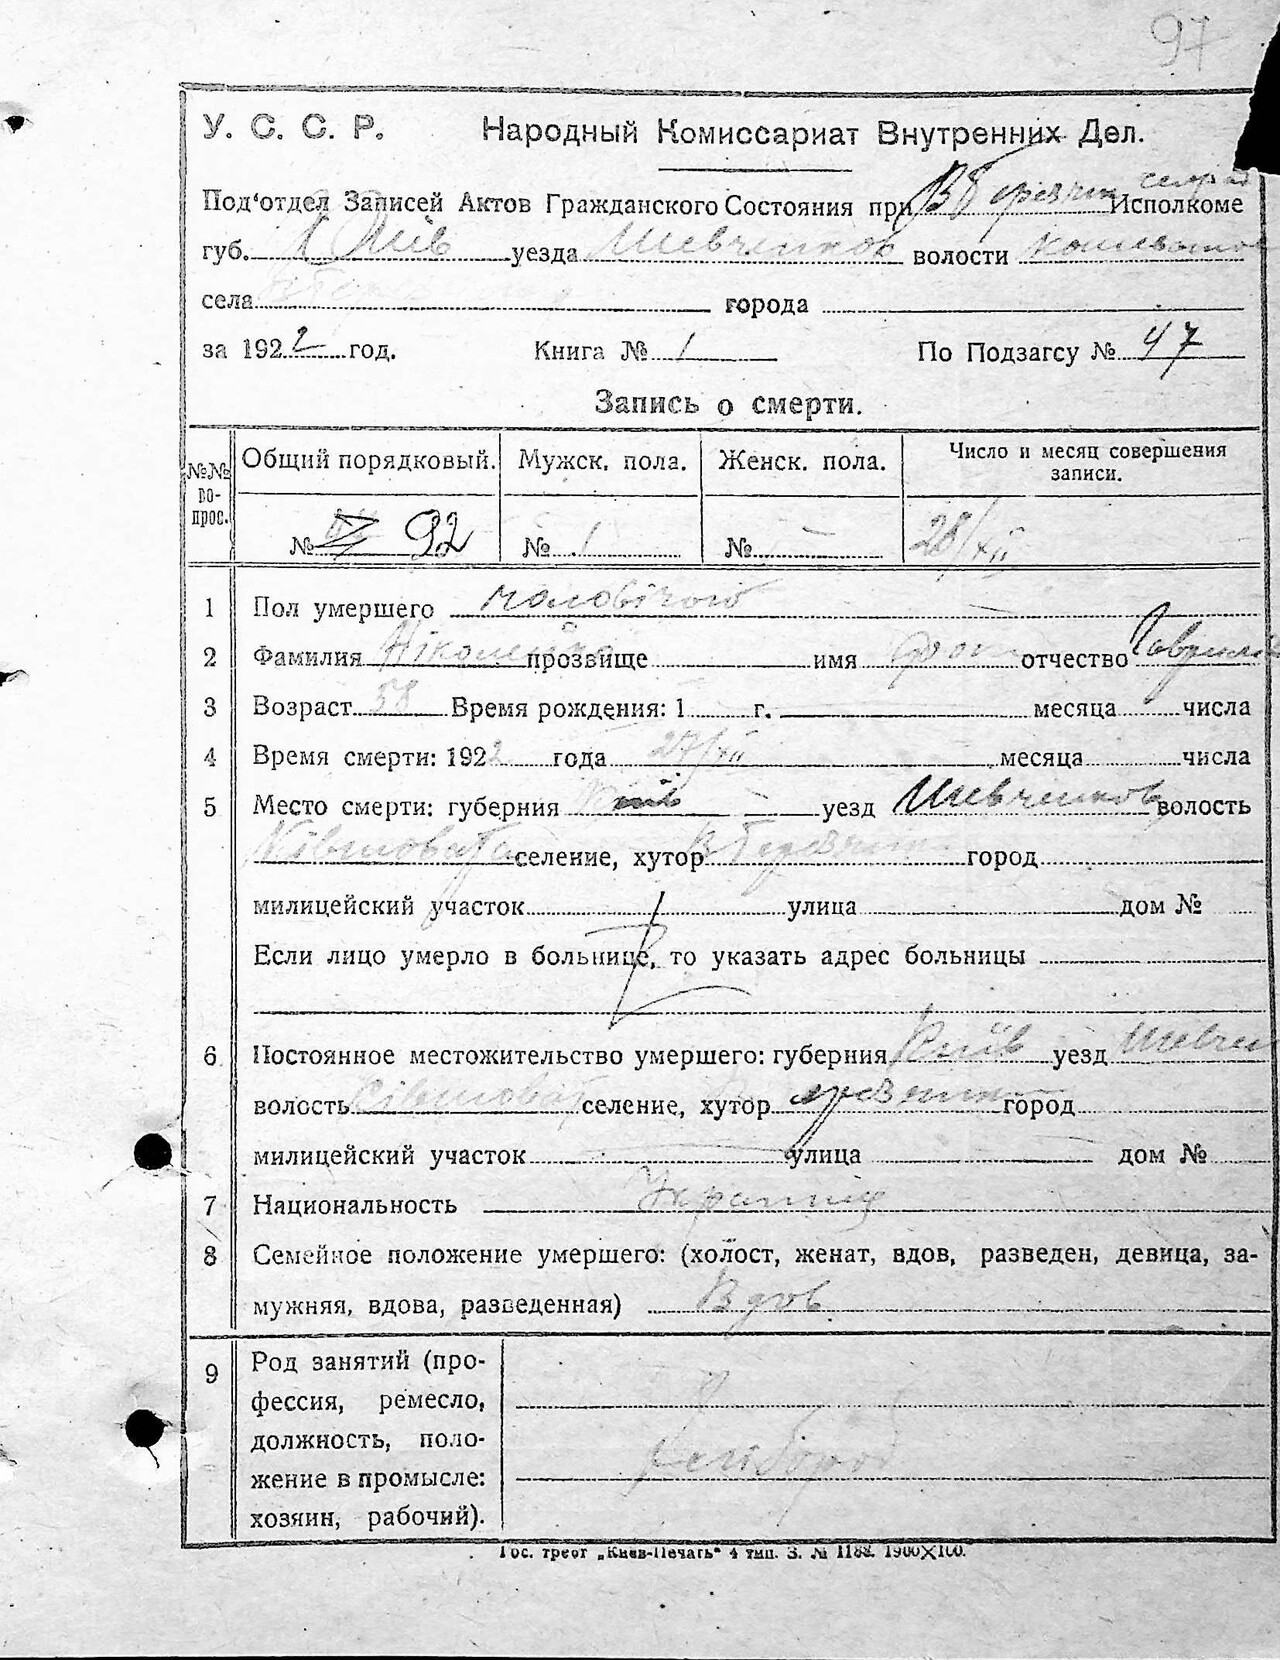 97
У. С. С. Р. Народный Комиссариат Внутренних Дел.
Под'отдел Записей Актов Гражданского Состояния при Исполкоме
губ. Київ уезда Шевченков волости
села города
за 1922 год. Книга № 1 По Подзагсу № 47
Запись о смерти.
№№ вопрос. Общий порядковый. Мужск. пола. Женск. пола. Число и месяц совершения записи.
№ 92 № 1 № — 28/XII
1 Пол умершего чоловічого
2 Фамилия прозвище имя отчество
3 Возраст 58 Время рождения: 1 г. месяца числа
4 Время смерти: 1922 года 27/XII месяца числа
5 Место смерти: губерния Київ уезд Шевченков волость
селение, хутор город
милицейский участок улица дом №
Если лицо умерло в больнице, то указать адрес больницы
6 Постоянное местожительство умершего: губерния Київ уезд Шевчен
волость селение, хутор город
милицейский участок улица дом №
7 Национальность
8 Семейное положение умершего: (холост, женат, вдов, разведен, девица, за-
мужняя, вдова, разведенная) Вдов
9 Род занятий (про-
фессия, ремесло,
должность, поло-
жение в промысле:
хозяин, рабочий).
Гос. трест „Киев-Печать" 4 тип. З. № 1188. 1900X100.